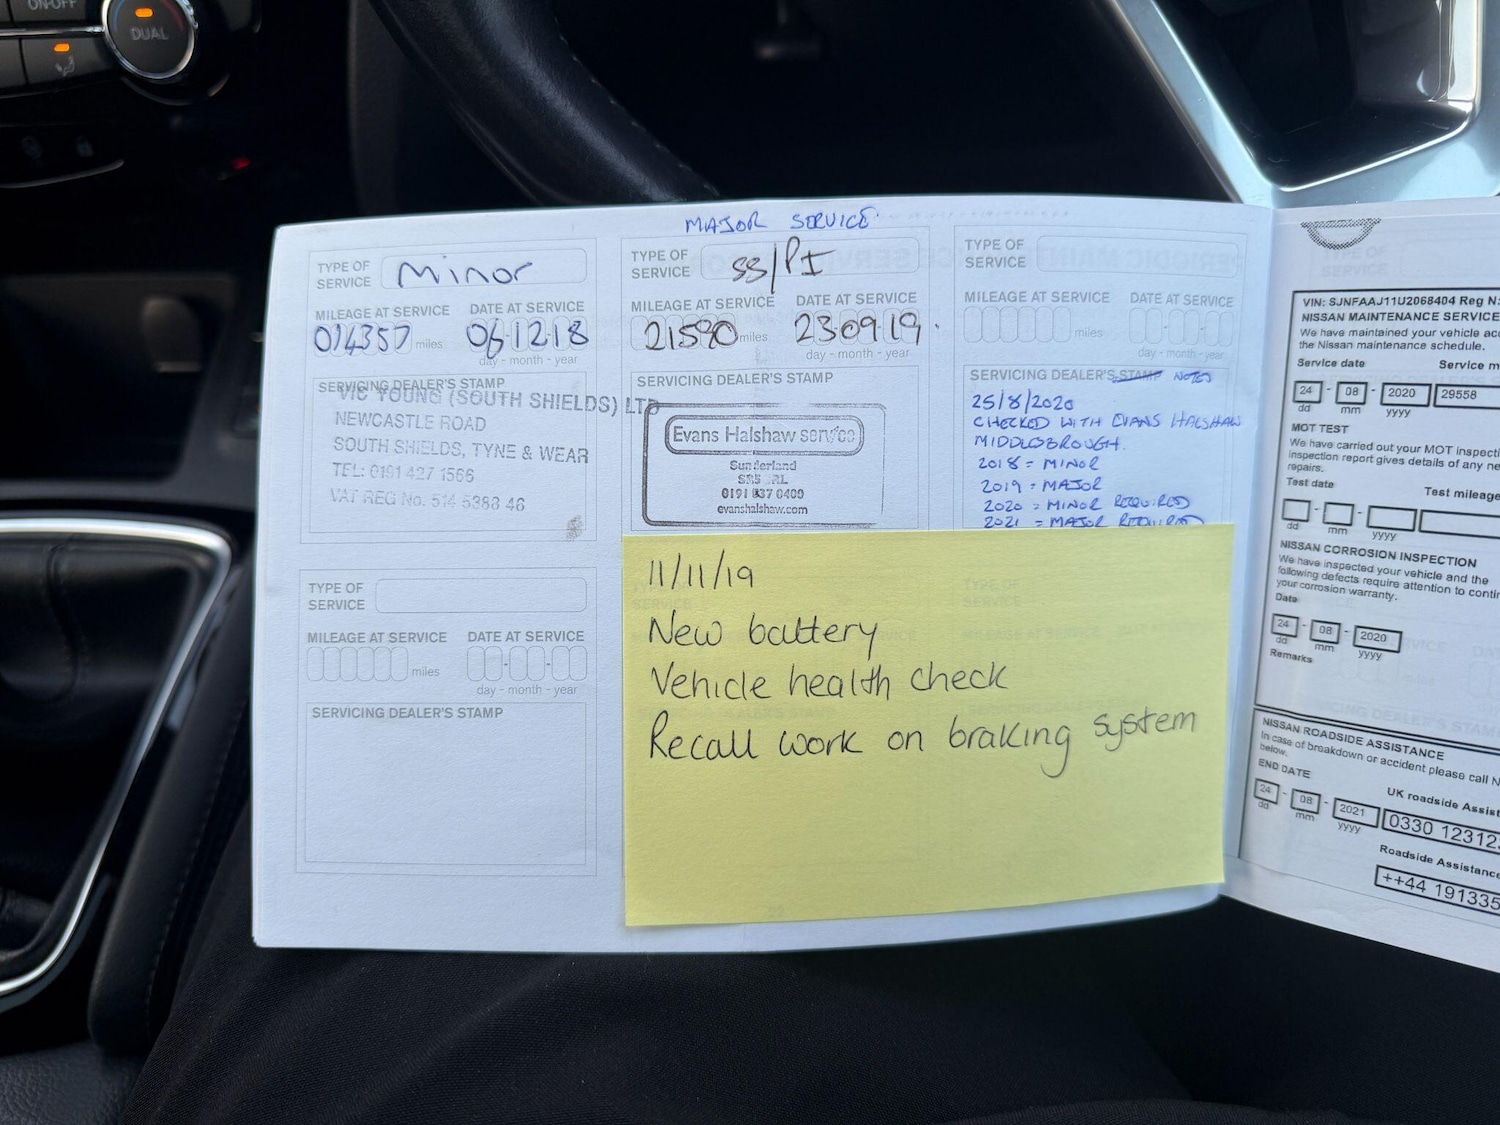 ON-OFF
DUAL
MAJOR SERVICE
TYPE OF SERVICE Minor
MILEAGE AT SERVICE DATE AT SERVICE
014357 miles 06-12-18
day - month - year
SERVICING DEALER'S STAMP
VIC YOUNG (SOUTH SHIELDS) LTD
NEWCASTLE ROAD
SOUTH SHIELDS, TYNE & WEAR
TEL: 0191 427 1566
VAT REG No. 514 5388 46
TYPE OF SERVICE SS/PI
MILEAGE AT SERVICE DATE AT SERVICE
21590 miles 23-09-19
day - month - year
SERVICING DEALER'S STAMP
Evans Halshaw service
Sunderland
0191 037 0400
evanshalshaw.com
TYPE OF SERVICE
MILEAGE AT SERVICE DATE AT SERVICE
miles
day - month - year
SERVICING DEALER'S STAMP NOTES
25/8/2020
CHECKED WITH EVANS HALSHAW
MIDDLESBROUGH.
2018 = MINOR
2019 = MAJOR
2020 = MINOR REQUIRED
2021 = MAJOR REQUIRED
TYPE OF SERVICE
MILEAGE AT SERVICE DATE AT SERVICE
miles
day - month - year
SERVICING DEALER'S STAMP
11/11/19
New battery
Vehicle health check
Recall work on braking system
VIN: SJNFAAJ11U2068404 Reg N
NISSAN MAINTENANCE SERVICE
We have maintained your vehicle acc
the Nissan maintenance schedule.
Service date Service m
24 - 08 - 2020 29558
dd mm yyyy
MOT TEST
We have carried out your MOT Inspecti
inspection report gives details of any ne
repairs.
Test date Test mileage
dd mm yyyy
NISSAN CORROSION INSPECTION
We have inspected your vehicle and the
following defects require attention to contin
your corrosion warranty.
Date
24 - 08 - 2020
dd mm yyyy
Remarks
NISSAN ROADSIDE ASSISTANCE
In case of breakdown or accident please call N
below.
END DATE UK roadside Assist
24 - 08 - 2021 0330 12312
dd mm yyyy
Roadside Assistance
++44 191335